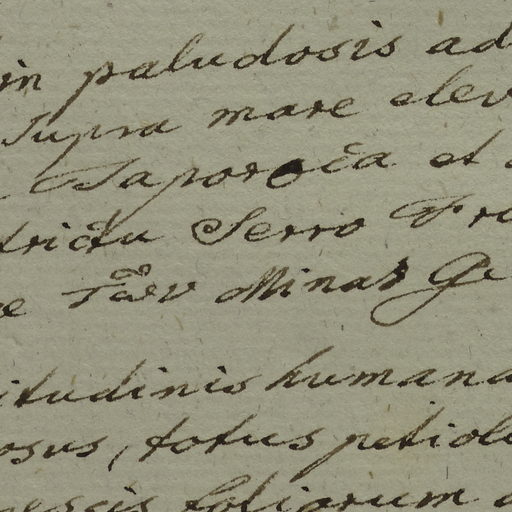 in paludosis ad
supra mare elev
Taporoca et
trictu Serro Fro
Minas Ge
itudinis humana
osus, totus petiol
foliorum